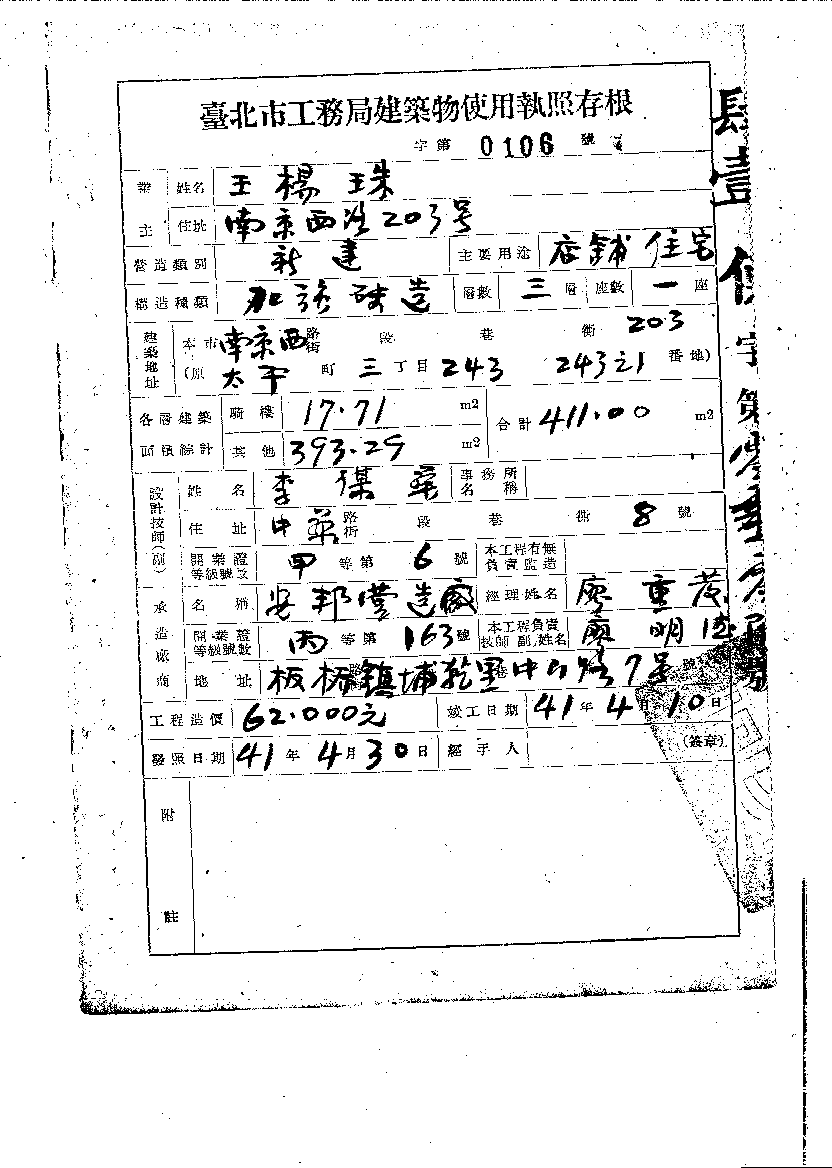 臺北市工務局建築物使用執照存根
字第 0106 號
業主 姓名 王楊珠
住址 南京西路203号
營造類別 新建 主要用途 店舖住宅
構造種類 加強磚造 層數 三 層 座數 一 座
建築地址 本市 南京西 路街 段 巷 衖 203
(原 太平 町 三 丁目 243 243之1 番地)
各層建築面積總計 騎樓 17.71 m2 合計 411.00 m2
其他 393.29 m2
設計技師(副) 姓名 李 事務所名稱
住址 中華 路街 段 巷 衖 8 號
開業證等級號數 甲 等第 6 號 本工程有無負責監造
承造廠商 名稱 安邦營造廠 經理姓名 廖重茂
開業證等級號數 丙 等第 163 號 本工程負責技師副姓名 廖明德
地址 板橋鎮埔墘里中山路7号
工程造價 62.000元 竣工日期 41年4月10日
發照日期 41年4月30日 經手人 (簽章)
附註
肆壹使字第零壹零陸號